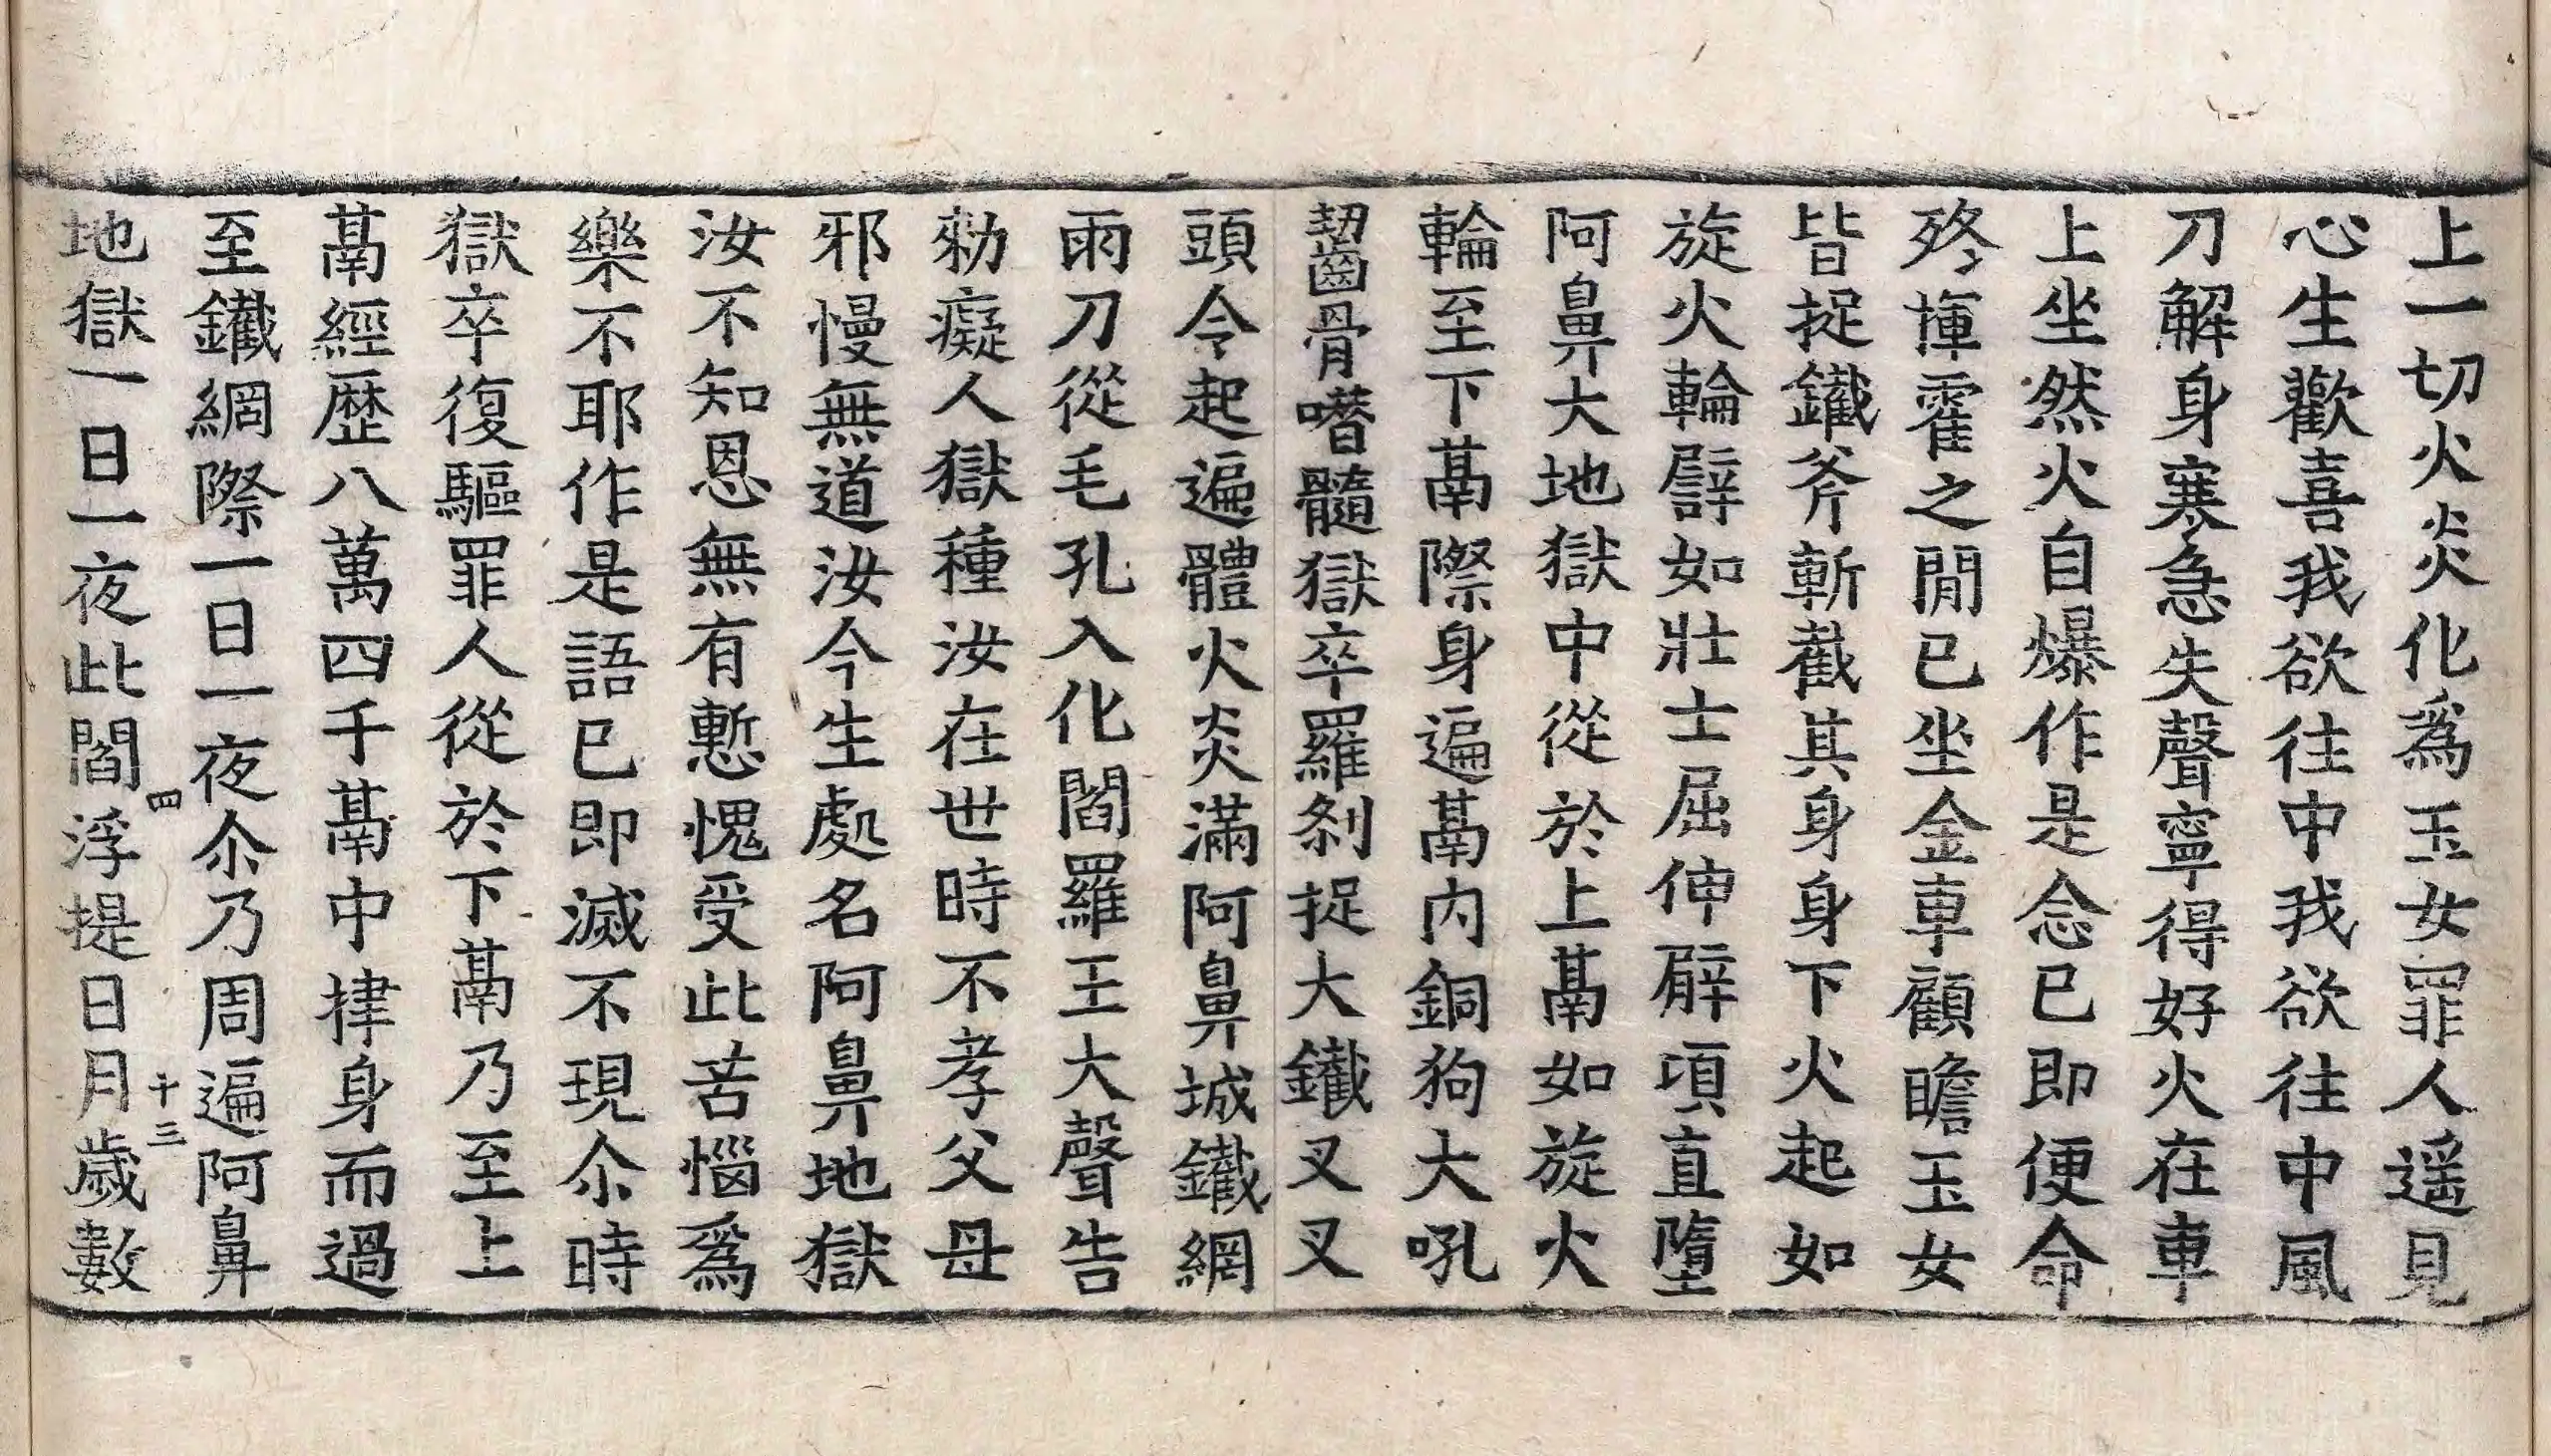 上一切火炎化爲玉女罪人遥見
心生歡喜我欲往中我欲往中風
刀解身寒急失聲寧得好火在車
上坐然火自爆作是念已即便命
終揮霍之閒已坐金車顧瞻玉女
皆捉鐵斧斬截其身身下火起如
旋火輪譬如壯士屈伸臂頃直墮
阿鼻大地獄中從於上鬲如旋火
輪至下鬲際身遍鬲内銅狗大吼
齧骨㗖髓獄卒羅刹捉大鐵叉叉
頭令起遍體火炎滿阿鼻城鐵網
雨刀從毛孔入化閻羅王大聲告
勑癡人獄種汝在世時不孝父母
邪慢無道汝今生處名阿鼻地獄
汝不知恩無有慙愧受此苦惱爲
樂不耶作是語已即滅不現尒時
獄卒復驅罪人從於下鬲乃至上
鬲經歷八萬四千鬲中捧身而過
至鐵網際一日一夜尒乃周遍阿鼻
地獄一日一夜此閻浮提日月歲數
四 十三